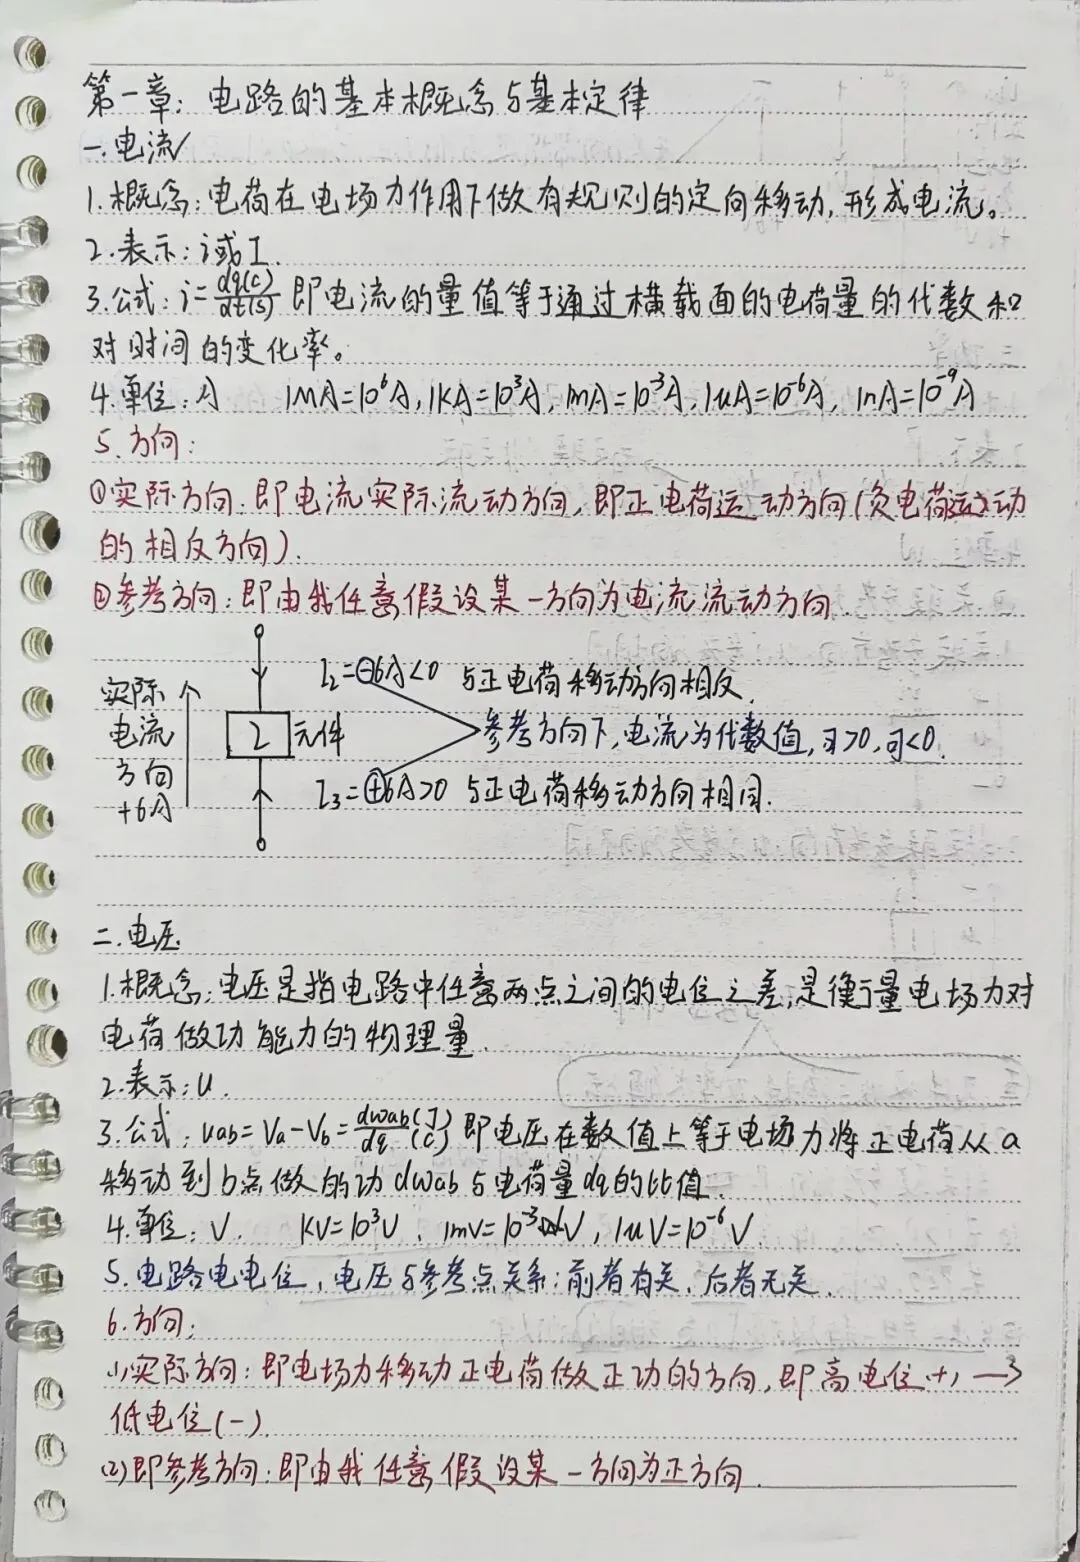 第一章：电路的基本概念与基本定律
一.电流
1.概念：电荷在电场力作用下做有规则的定向移动，形成电流。
2.表示：i或I.
3.公式：i=dq(c)/dt(s) 即电流的量值等于通过横截面的电荷量的代数和
对时间的变化率。
4.单位：A 1MA=10⁶A，1KA=10³A，mA=10⁻³A，1uA=10⁻⁶A，1nA=10⁻⁹A
5.方向：
①实际方向：即电流实际流动方向，即正电荷运动方向(负电荷运动
的相反方向).
②参考方向：即由我任意假设某一方向为电流流动方向.
实际
电流
方向
+6A
2 元件
I₂=⊖6A<0 与正电荷移动方向相反.
参考方向下，电流为代数值，可>0，可<0.
I₃=⊕6A>0 与正电荷移动方向相同.
二.电压
1.概念：电压是指电路中任意两点之间的电位之差，是衡量电场力对
电荷做功能力的物理量.
2.表示：u.
3.公式：uab=Va-Vb=dwab(J)/dq(c) 即电压在数值上等于电场力将正电荷从a
移动到b点做的功dwab与电荷量dq的比值.
4.单位：V. KV=10³V，1mV=10⁻³V，1uV=10⁻⁶V.
5.电路电电位，电压与参考点关系：前者有关，后者无关.
6.方向：
(1)实际方向：即电场力移动正电荷做正功的方向，即高电位(+)→
低电位(-).
(2)即参考方向：即由我任意假设某一方向为正方向.